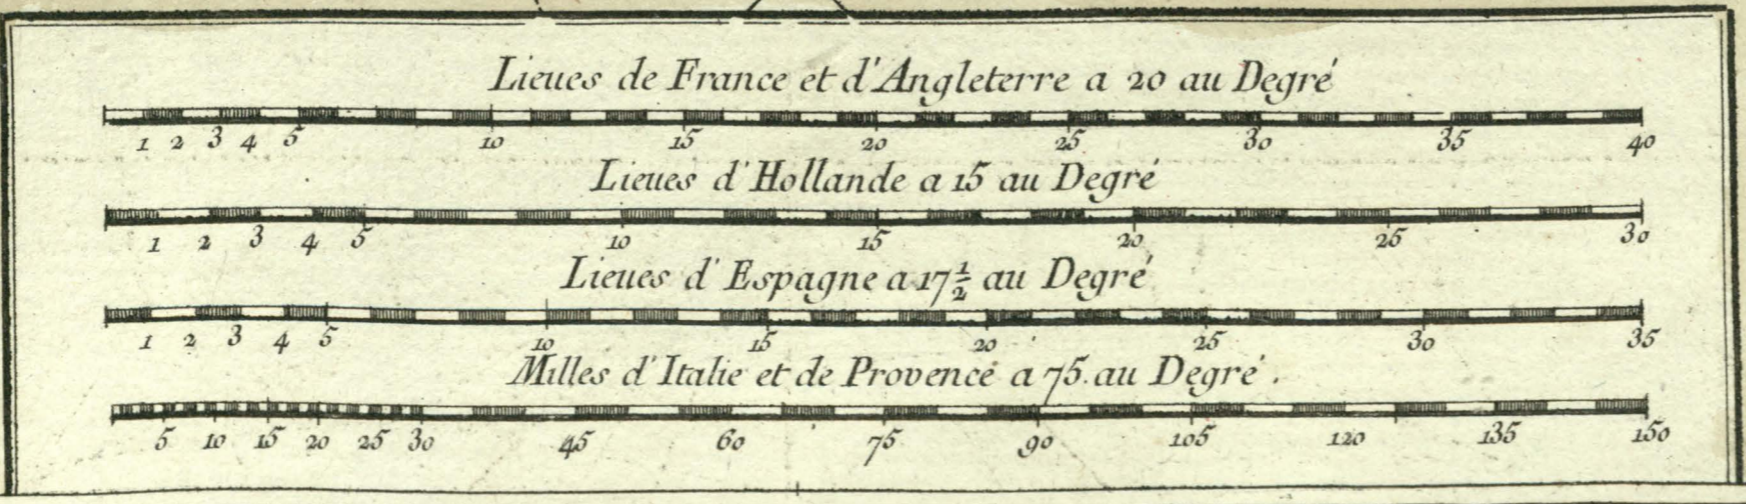 Lieues de France et d'Angleterre a 20 au Degré
1 2 3 4 5 10 15 20 25 30 35 40
Lieues d'Hollande a 15 au Degré
1 2 3 4 5 10 15 20 25 30
Lieues d'Espagne a 17½ au Degré
1 2 3 4 5 10 15 20 25 30 35
Milles d'Italie et de Provence a 75. au Degré.
5 10 15 20 25 30 45 60 75 90 105 120 135 150